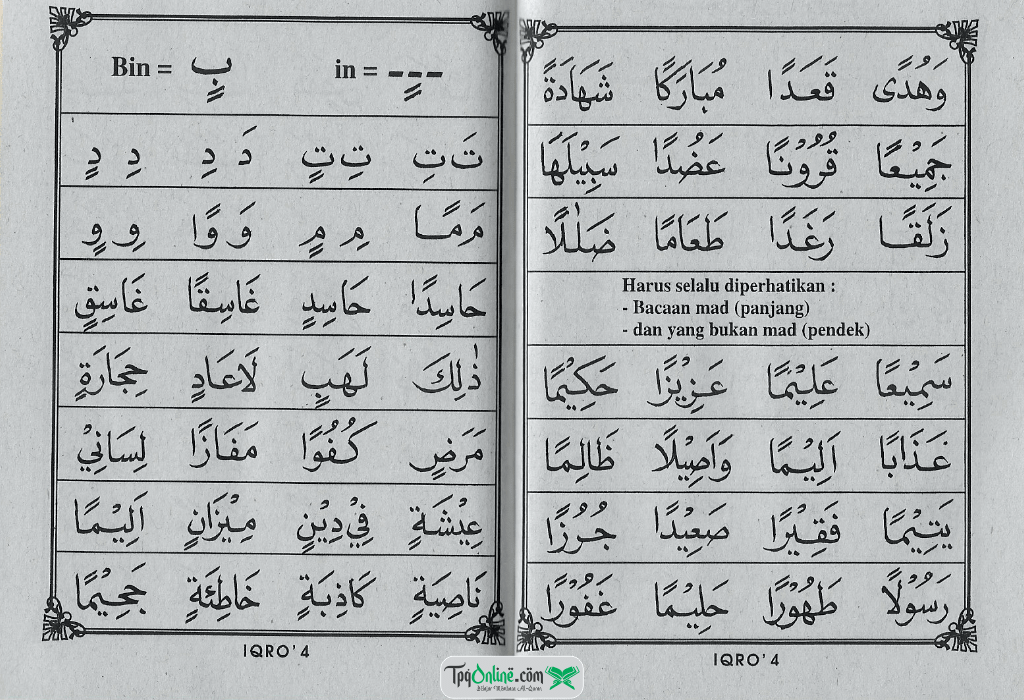 وَهُدًى قَعَدًا مُبَارَكًا شَهَادَةً
جَمِيْعًا قُرُوْنًا عَضُدًا سَبِيْلَهَا
زَلَقًا رَغَدًا طَعَامًا ضَلٰلًا
Harus selalu diperhatikan :
- Bacaan mad (panjang)
- dan yang bukan mad (pendek)
سَمِيْعًا عَلِيْمًا عَزِيْزًا حَكِيْمًا
عَذَابًا اَلِيْمًا وَاَصِيْلًا ظَالِمًا
يَتِيْمًا فَقِيْرًا صَعِيْدًا جُرُزًا
رَسُوْلًا طَهُوْرًا حَلِيْمًا غَفُوْرًا
IQRO' 4
Bin = بٍ in = ---ٍ
تَ تِ تِ تٍ دَ دِ دِ دٍ
مَ مًا مِ مٍ وَ وًا وِ وٍ
حَاسِدًا حَاسِدٍ غَاسِقًا غَاسِقٍ
ذٰلِكَ لَهَبٍ لَاعَادٍ حِجَارَةٍ
مَرَضٍ كُفُوًا مَفَازًا لِسَانِيْ
عِيْشَةٍ فِيْ دِيْنٍ مِيْزَانٍ اَلِيْمًا
نَاصِيَةٍ كَاذِبَةٍ خَاطِئَةٍ جَحِيْمًا
IQRO' 4
TpqOnline.com
Belajar Membaca Al-Quran